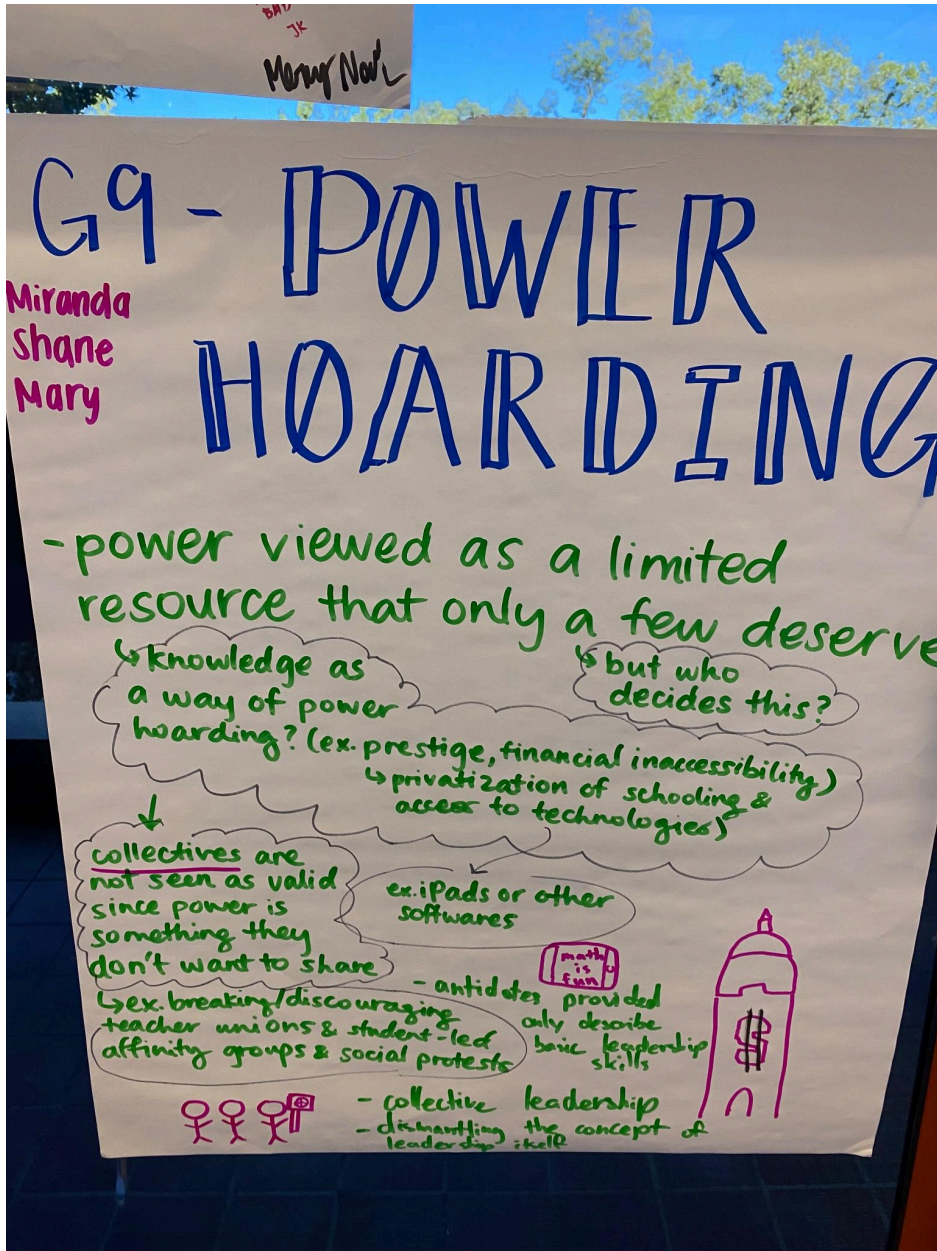 BAD
JK
G9 - POWER
HOARDING
Miranda
Shane
Mary
- power viewed as a limited
resource that only a few deserve
↳ knowledge as
a way of power
hoarding? (ex. prestige, financial inaccessibility)
↳ privatization of schooling &
access to technologies)
↳ but who
decides this?
↓
collectives are
not seen as valid
since power is
something they
don't want to share
ex. iPads or other
softwares
↳ ex. breaking/discouraging
teacher unions & student-led
affinity groups & social protests
math
is
fun
- antidotes provided
only describe
basic leadership
skills
$
- collective leadership
- dismantling the concept of
leadership itself